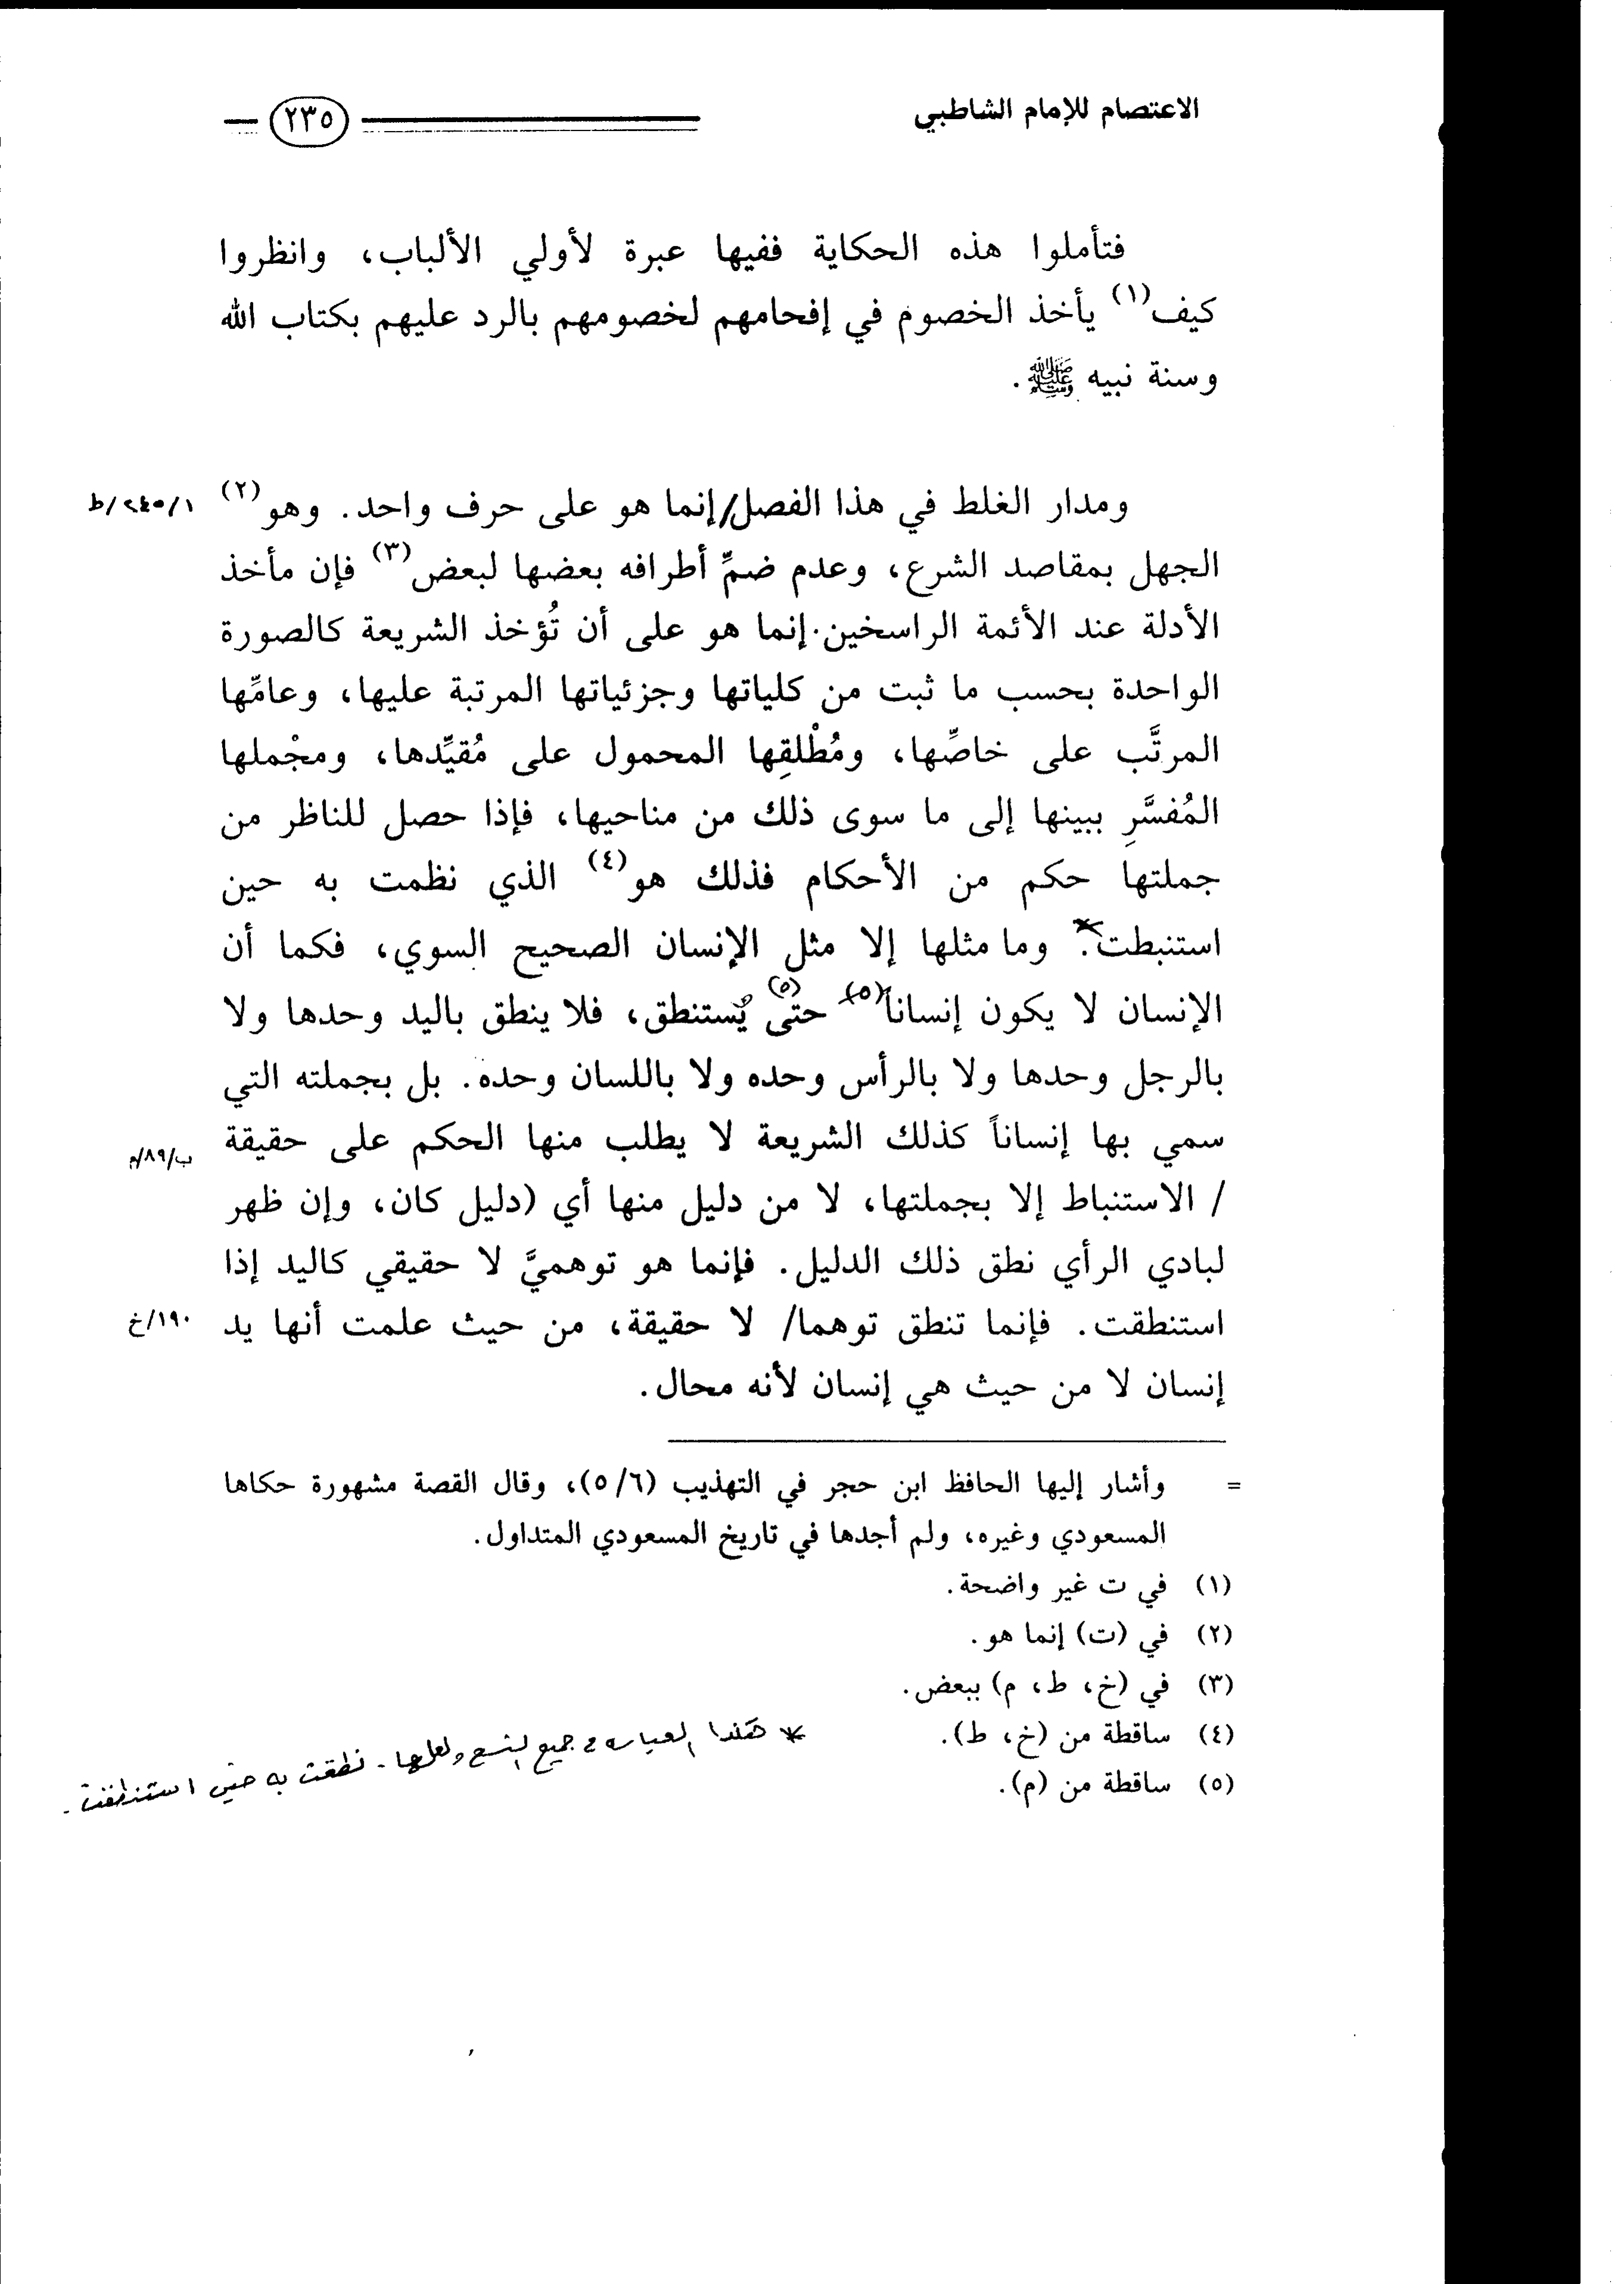 الاعتصام للإمام الشاطبي
٢٣٥
فتأملوا هذه الحكاية ففيها عبرة لأولي الألباب، وانظروا
كيف(١) يأخذ الخصوم في إفحامهم لخصومهم بالرد عليهم بكتاب الله
وسنة نبيه ﷺ.
ومدار الغلط في هذا الفصل/إنما هو على حرف واحد. وهو(٢) ٢٤٥/١/ط
الجهل بمقاصد الشرع، وعدم ضمِّ أطرافه بعضها لبعض(٣) فإن مأخذ
الأدلة عند الأئمة الراسخين.إنما هو على أن تُؤخذ الشريعة كالصورة
الواحدة بحسب ما ثبت من كلياتها وجزئياتها المرتبة عليها، وعامِّها
المرتَّب على خاصِّها، ومُطْلقِها المحمول على مُقيِّدها، ومجْملها
المُفسَّرِ ببينها إلى ما سوى ذلك من مناحيها، فإذا حصل للناظر من
جملتها حكم من الأحكام فذلك هو(٤) الذي نظمت به حين
استنبطت*. وما مثلها إلا مثل الإنسان الصحيح السوي، فكما أن
الإنسان لا يكون إنساناً(٥) حتى(٥) يُستنطق، فلا ينطق باليد وحدها ولا
بالرجل وحدها ولا بالرأس وحده ولا باللسان وحده. بل بجملته التي
سمي بها إنساناً كذلك الشريعة لا يطلب منها الحكم على حقيقة ب/٨٩/م
/ الاستنباط إلا بجملتها، لا من دليل منها أي (دليل كان، وإن ظهر
لبادي الرأي نطق ذلك الدليل. فإنما هو توهميَّ لا حقيقي كاليد إذا
استنطقت. فإنما تنطق توهما/ لا حقيقة، من حيث علمت أنها يد ١٩٠/خ
إنسان لا من حيث هي إنسان لأنه محال.
= وأشار إليها الحافظ ابن حجر في التهذيب (٥/٦)، وقال القصة مشهورة حكاها
المسعودي وغيره، ولم أجدها في تاريخ المسعودي المتداول.
(١) في ت غير واضحة.
(٢) في (ت) إنما هو.
(٣) في (خ، ط، م) ببعض.
(٤) ساقطة من (خ، ط).
(٥) ساقطة من (م).
* هكذا العبارة في جميع النسخ ولعلها - نطقت به حين استنطقت.